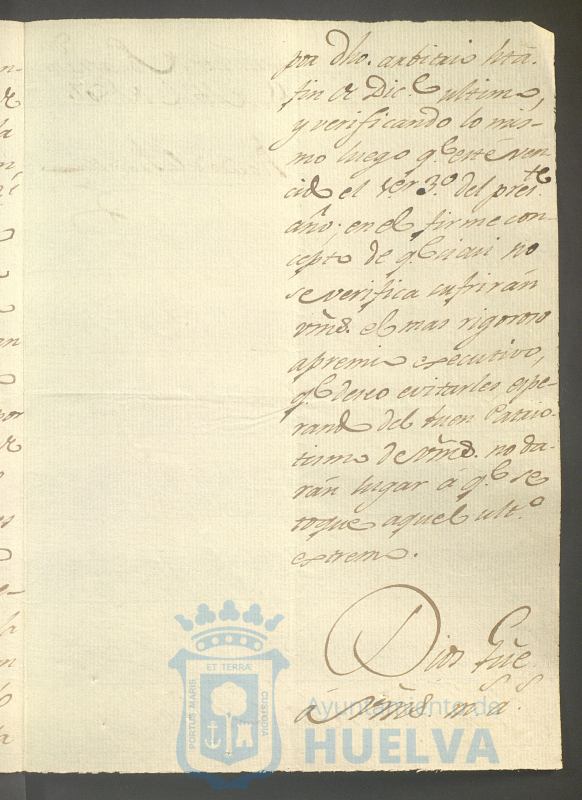 por dho. arbitrio hta.
fin de Dic.e ultimo,
y verificando lo mis-
mo luego q.e este ven-
cido el 1.er 3.o del pres.te
año; en el firme con-
cepto de q.e si asi no
se verifica sufrirán
vms. el mas rigoroso
apremio executivo,
q.e deseo evitarles espe-
rando del buen Patrio-
tismo de vms. no da-
rán lugar á q.e se
toque aquel ult.o
extremo.
Dios gue.
á vms m.s a.s
PORTUS MARIS ET TERRAE CUSTODIA
Ayuntamiento de
HUELVA